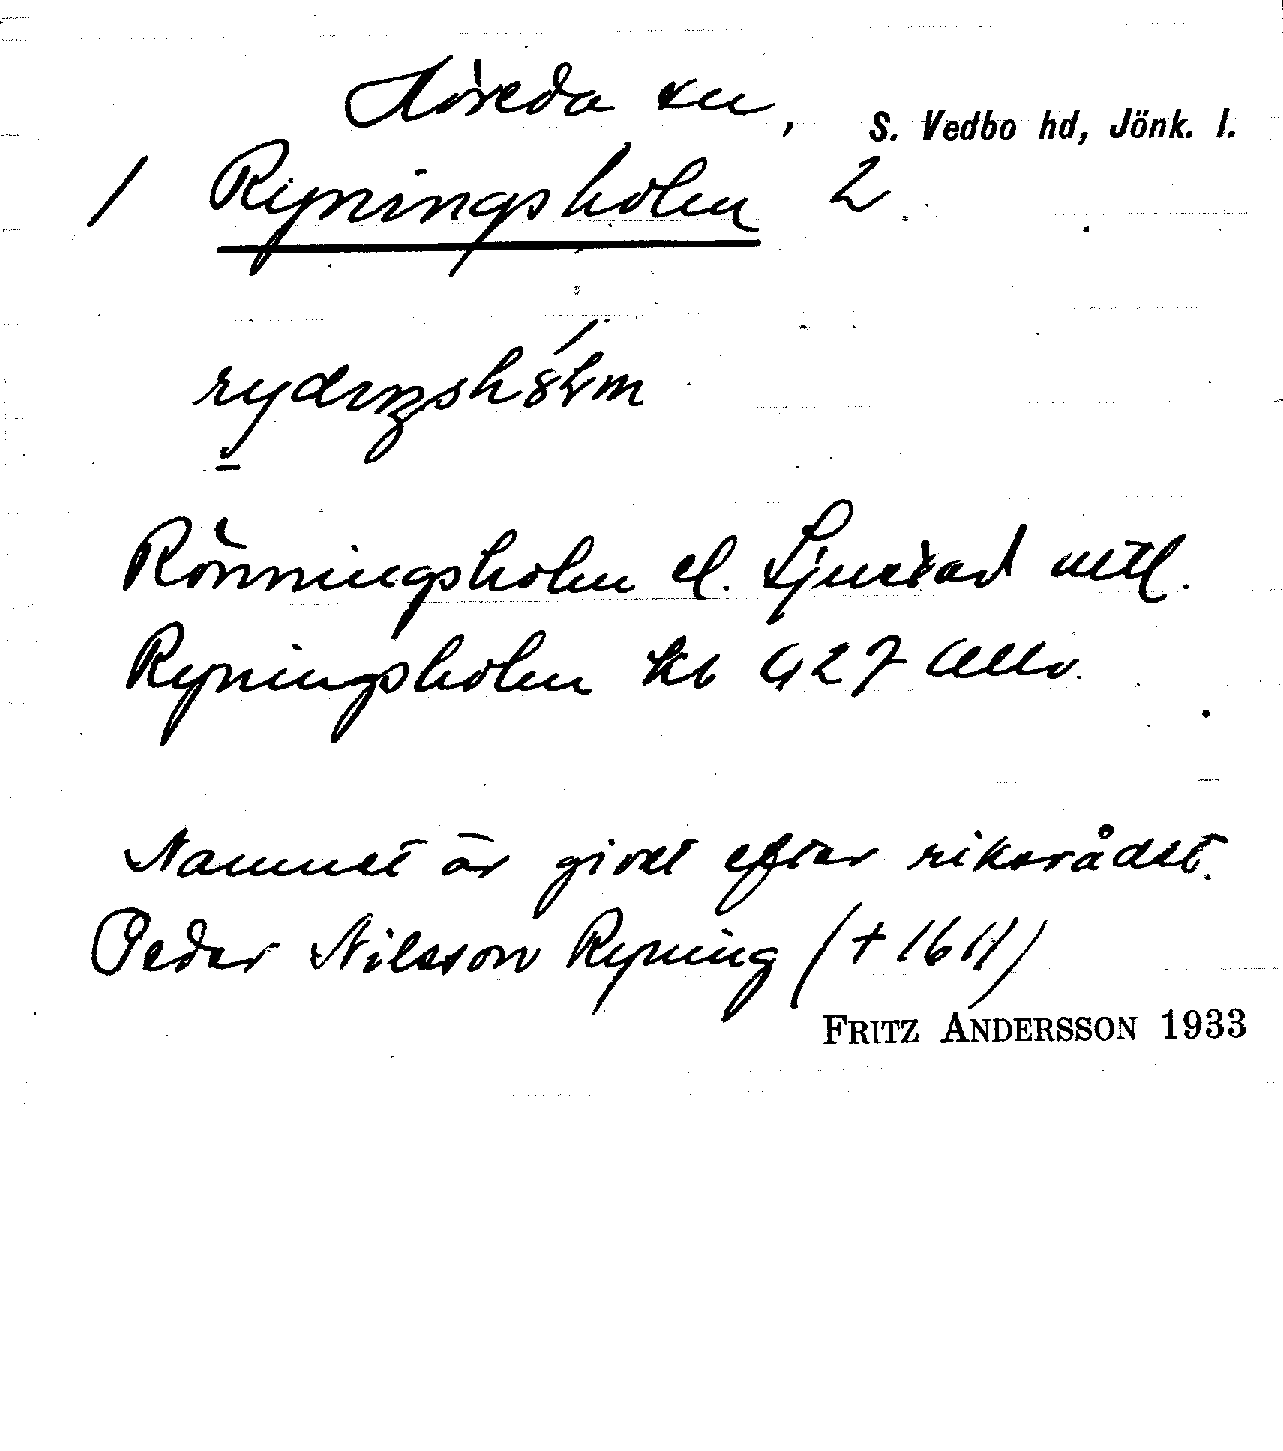 Höreda sn, S. Vedbo hd, Jönk. l.
1 Ryningsholm 2
Rönningsholm el. Ljustad uttl.
Ryningsholm kb 427
Namnet är givet efter riksrådet
Peder Nilsson Ryning († 1611)
FRITZ ANDERSSON 1933